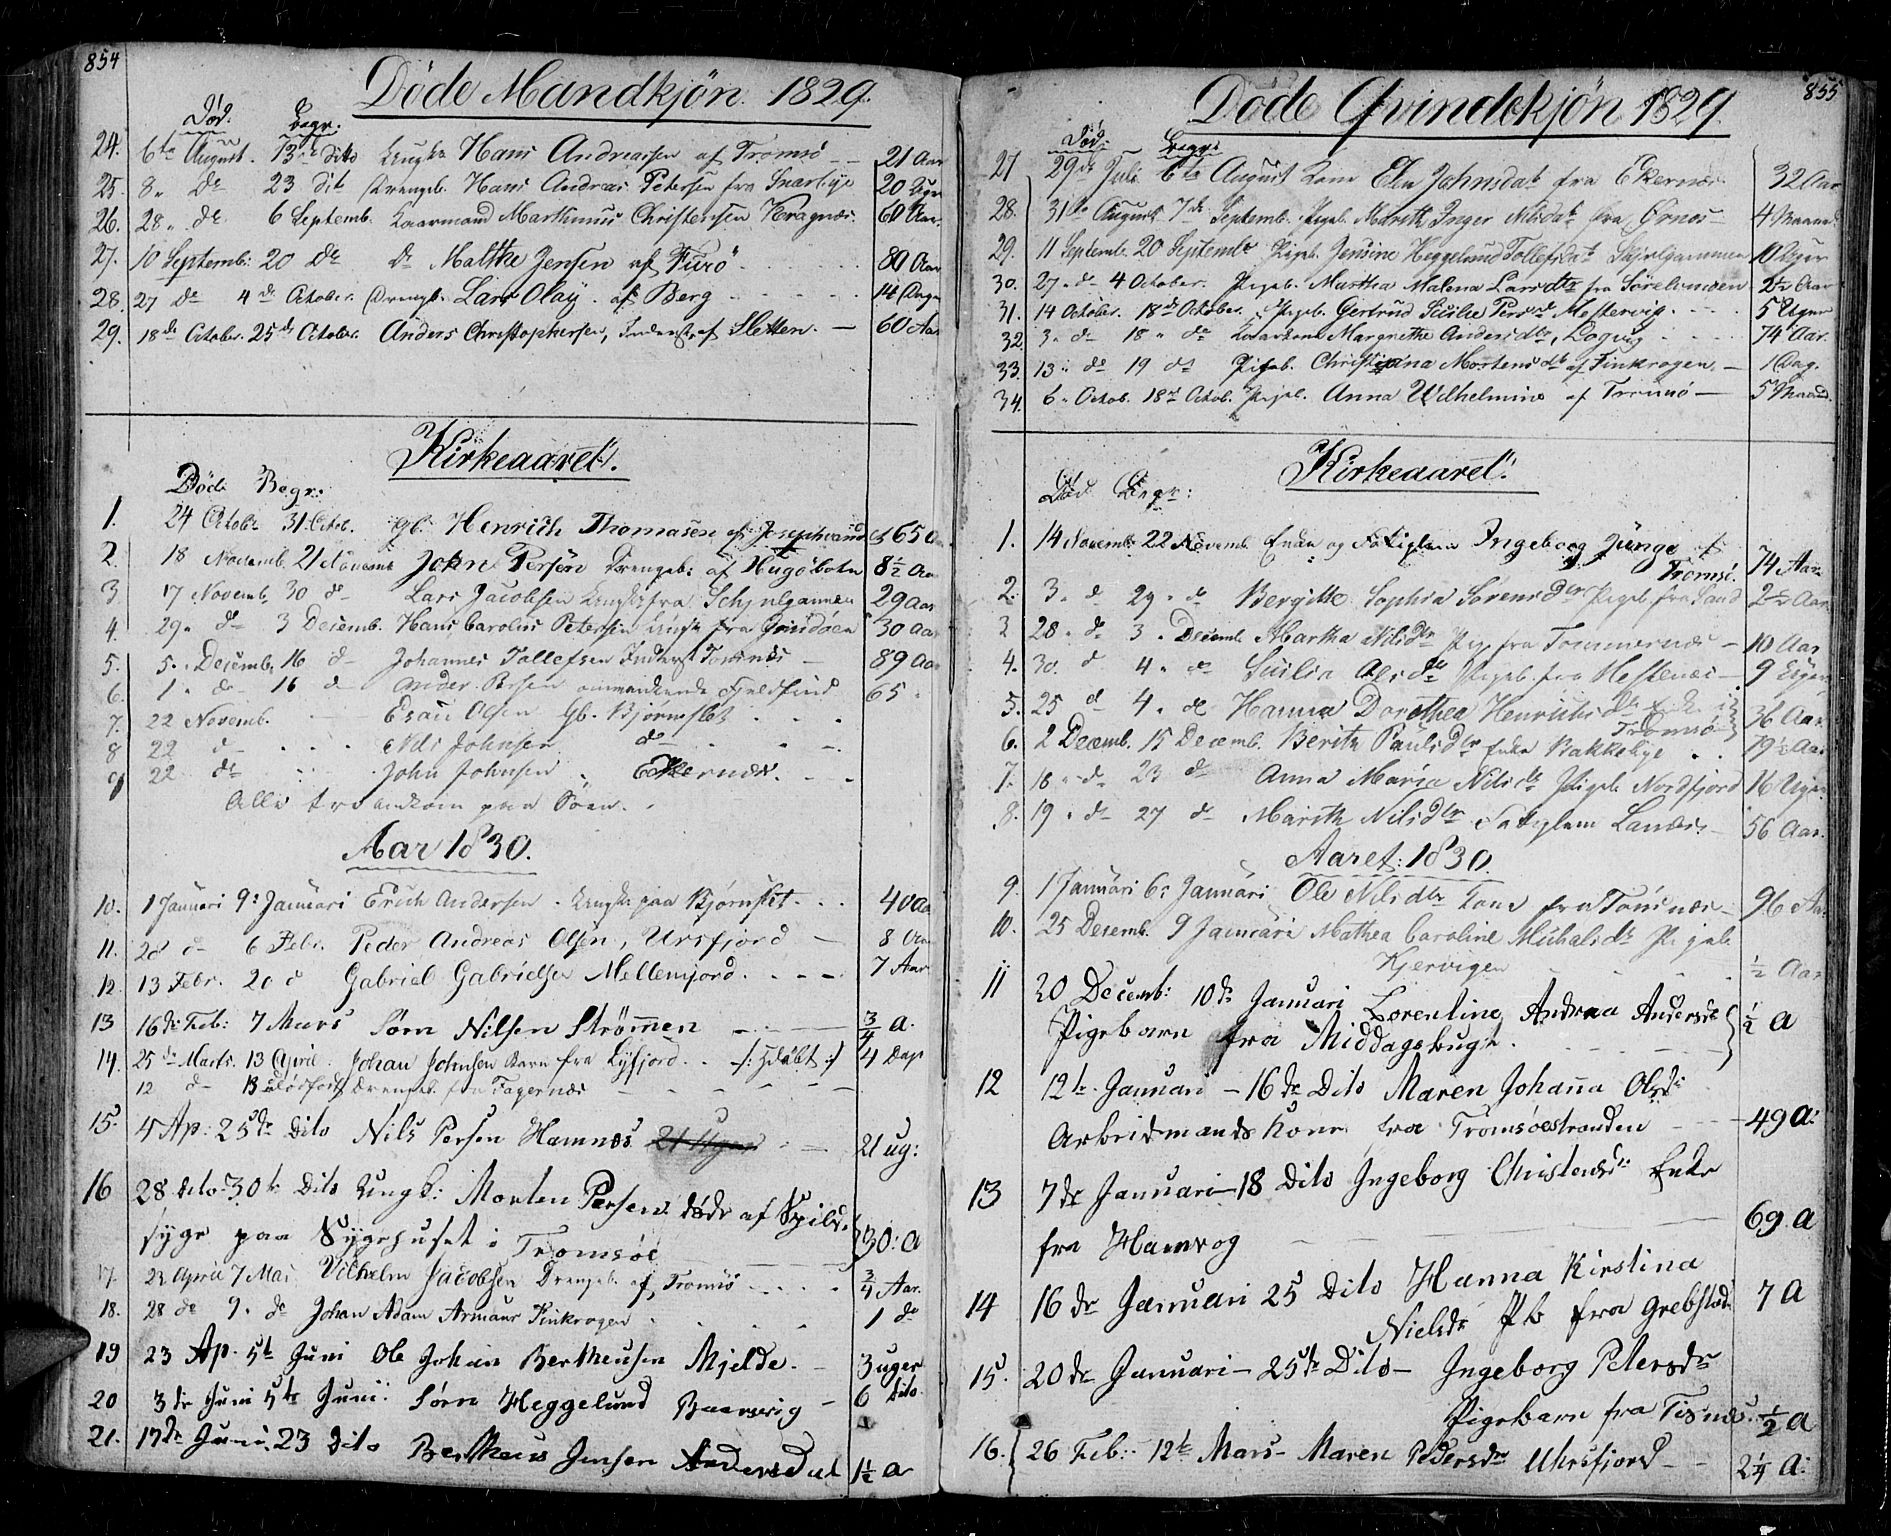 854
Døde Mandkjøn. 1829.
Død. Begr:
24. 6te August. 13de dito Ungk: Hans Andreassen af Tromsø 21 Aar
25. 8 " de 23 dit Drengeb. Hans Andreas Petersen fra Snarbye 20 Uger
26. 28 " de 6 Septemb. Kaarmand Marthinus Christensen Kragnæs 60 Aar.
27. 10 Septemb: 20 de de Malthe Jensen af Furö 80 Aar
28. 27 de 4de October. Drengeb. Lars Olaÿ af Berg 14 Dage
29. 18de October. 25de October. Anders Christophersen, Inderst af Sletten. 60 Aar
Kirkeaaret.
Døde Begr:
1. 24 Octobr 31. Octob. gb. Henrich Thomasen af Josephvand 65 Aar
2. 18 Novemb. 21 Novemb John Persen Drengeb: af Hugobotn 8½ Aar
3. 17 Novemb. 30 de Lars Jacobsen Ungk: fra Schjulgammen 29 Aar
4. 29. de 3 Decemb. Hans Carolus Petersen Ungk fra Grindøen 30 Aar
5. 5. Decemb. 16 d Johannes Tollefsen Inderst Tomnæs 89 Aar
6. 1. de 16 d Ander. Persen omvankende Fjeldfind 65
7. 22 Novemb. Esau Olsen Gb. Bjørnslet
8 22 d Nils Johnsen do
9 22 de John Johnsen Ekernæs.
Alle tre omkom paa Søen.
Aar 1830.
10. 1 Januari 9: Januari Erich Andersen. Ungk: paa Bjørnslet 40 Aa
11. 28 d 6 Febr. Peder Andreas Olsen, Ursfjord 8 Aar
12. 13 Febr. 20 d Gabriel Gabrielsen Mellemjord. 7 Aar
13 16de Feb: 7 Mars Sørn Nilsen Strømmen ¾ a.
14. 25de Marts. 13 April. Johan Johnsen Barn fra Lysfjord /: Hdøbt :/ 4 Dage
12 d 13 dødfødt Drengeb. fra Fagernæs
15. 4 Ap: 25de Dito Nils Persen Hamnæs 21 ug:
16 28 Dito 30te Dito Ungk: Morten Persen døde af Spild.
syge paa Sygehuset i Tromsøe 30: A
17. 22 April 7 Mai Vilhelm Jacobsen Drengeb. af Tromsö ¾ Aar.
18. 28 de 9. de Johan Adam Armaur Finkrogen 1 do
19 23 Ap. 5te Juni Ole Johan Bertheusen Mjelde. 3 uger
20 3de Juni 5te Juni: Sørn Heggelund Baarevig 6 Dito.
21. 17de Juni. 23 Dito Bertheus Jensen Andersdal 1½ A
855
Døde Qvindekjøn 1829.
Død: Begr:
27 29de Juli 6te August Kone Elen Johnsdatr fra Ekernæs 32 Aar
28. 31te August 7de Septemb. Pigeb. Marith Inger Nilsdatr fra Grnæs 4 Maaned
29. 11 Septemb. 20 Septembr Pigeb. Jensine Heggelund Tollefsdatr Skjelgammen 10 Uger
30. 27. d 4 October. Pigeb. Martha Malena Larsdtr fra Sørelvmoen 2½ Aar
31. 14 October. 18de October. Pigeb. Gertrud Sicilie Persd. Mestervig. 5 Uger
32 3. d 18 " de Kaarkone Margrethe Andersdtr, Logvig 74 Aar.
33. 13. de 19 de Pigeb. Christina Mortensdtr af Finkrogen. 1 Dag.
34. 6. Octob. 18de Octob. Pigeb. Anna Wilhelmine af Tromsö 5 Maaned.
Kirkeaaret.
Død Begr:
1. 14 Novemb. 22 Novemb. Enke og Fattiglem Ingeborg Junge af
Tromsø. 74 Aar
2. 3. d 29. de Bergitte Sophia Sörensdtr Pigeb. fra Sand 2½ Aar
3 28. d. 3. Decemb. Martha Nilsdtr Pig. fra Tommernæs 10 Aar
4. 30. d 4. de Sicilia Olsdtr Pigeb. fra Hestenæs 9 Uger
5. 25 d 4. de Hanna Dorothea Henrichsdtr Enke i
Tromsø 36 Aar
6. 2 Decemb. 15 Decemb. Berith Paulsdtr Enke Bakkebye 79½ Aar
7. 18 " de 23 de Anna Maria Nilsdtr Pigeb. Nordfjord 16 Uger
8. 19. de 27 de Marith Nilsdtr Fattiglem Lanæs 56 Aar.
Aaret: 1830.
9. 1 Januari 6: Januari Ole Nilsdtr Kone fra Tonsnæs 96 Aar
10. 25 Decemb. 9 Januari Mathea Caroline Michalsdr Pigeb.
Kjervigen ½ Aar
11 20 Decemb: 10de Januari Lorentine Andrea Andersdr
Pigebarn fra Middagsbugt. ½ A
12 12te Januari – 16de Dito Maren Johanna Olsdr
Arbeidmands Kone fra Tromsøestranden 49 A:
13 7de Januari – 18 Dito Ingeborg Christensdr Enke
fra Hamvog 69 A
14 16de Januari 25 Dito Hanna Kirstina
Nielsdr Pb fra Grebstad 7 A
15. 20de Januari – 25de Dito – Ingeborg Petersdr
Pigebarn fra Tisnæs. ½ A
16. 26 Feb: 12te Mars – Maren Pedersdr Uhrsfjord 2¼ A: